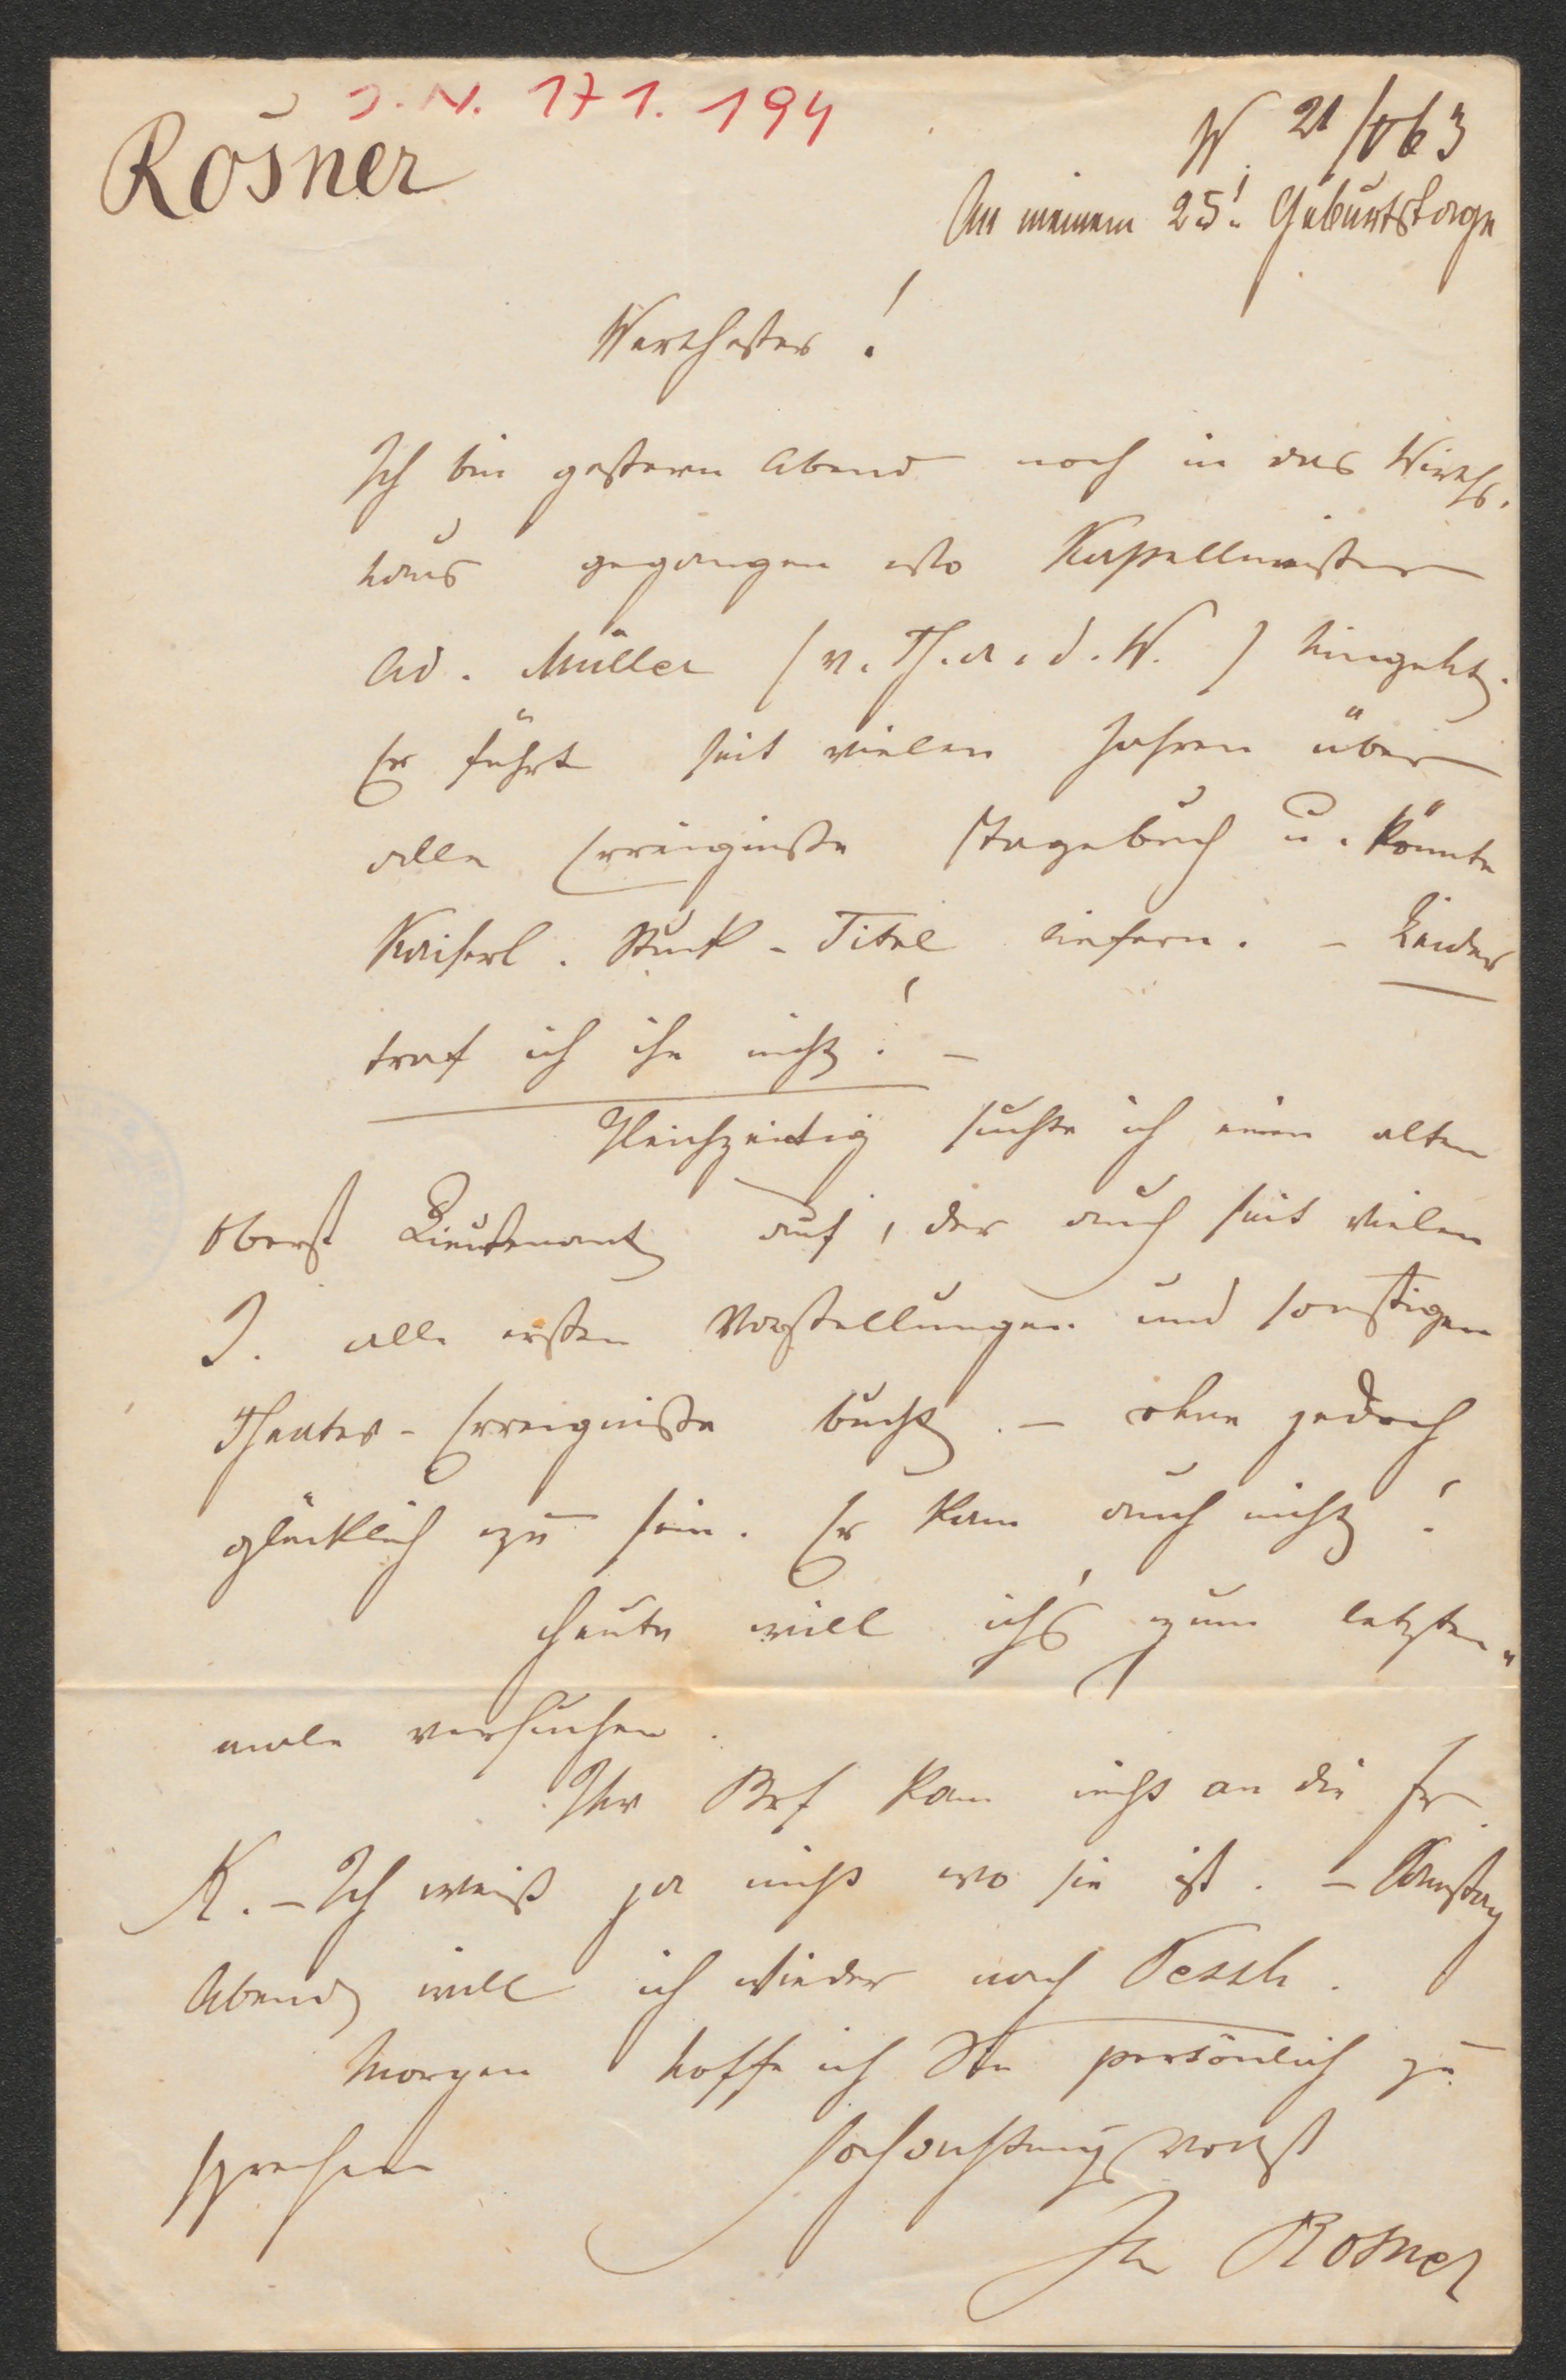 J. N. 171.194
Rosner
W. 21/ 63
An meinem 25! Geburtstage
Werthester!
Ich bin gestern Abend noch in das Wirths-
haus gegangen wo Kapellmeister
Ad. Müller (v. Th. a. d. W.) hingeht.
Er führt seit vielen Jahren über
alle Erreigniße Tagebuch u. könnte
Kaiserl. Stück-Titel liefern. – Leider
traf ich ihn nicht! –
Gleichzeitig suchte ich einen alten
Oberst Lieutenant auf, der auch seit vielen
J. alle ersten Vorstellungen und sonstigen
Theater-Erreigniße bucht. – ohne jedoch
glücklich zu sein. Er kam auch nicht!
Heute will ich's zum letzten-
male versuchen.
Ihr Brf kam nicht an die Fr.
K. – Ich weiß ja nicht wo sie ist. – Samstag
Abend will ich wieder nach Pesth.
Morgen hoffe ich Sie persönlich zu
sprechen Hochachtungsvollst
Ihr Rosner